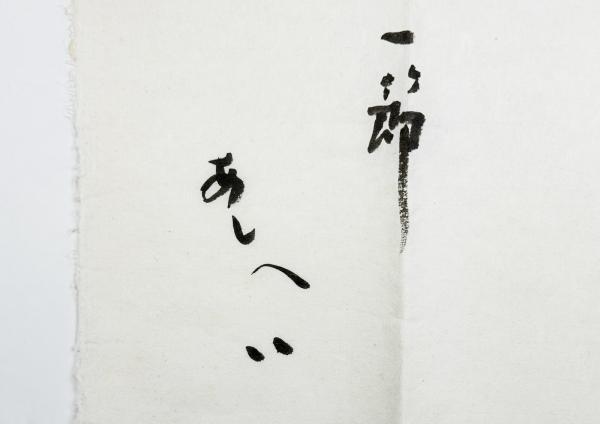 一節
あしへい